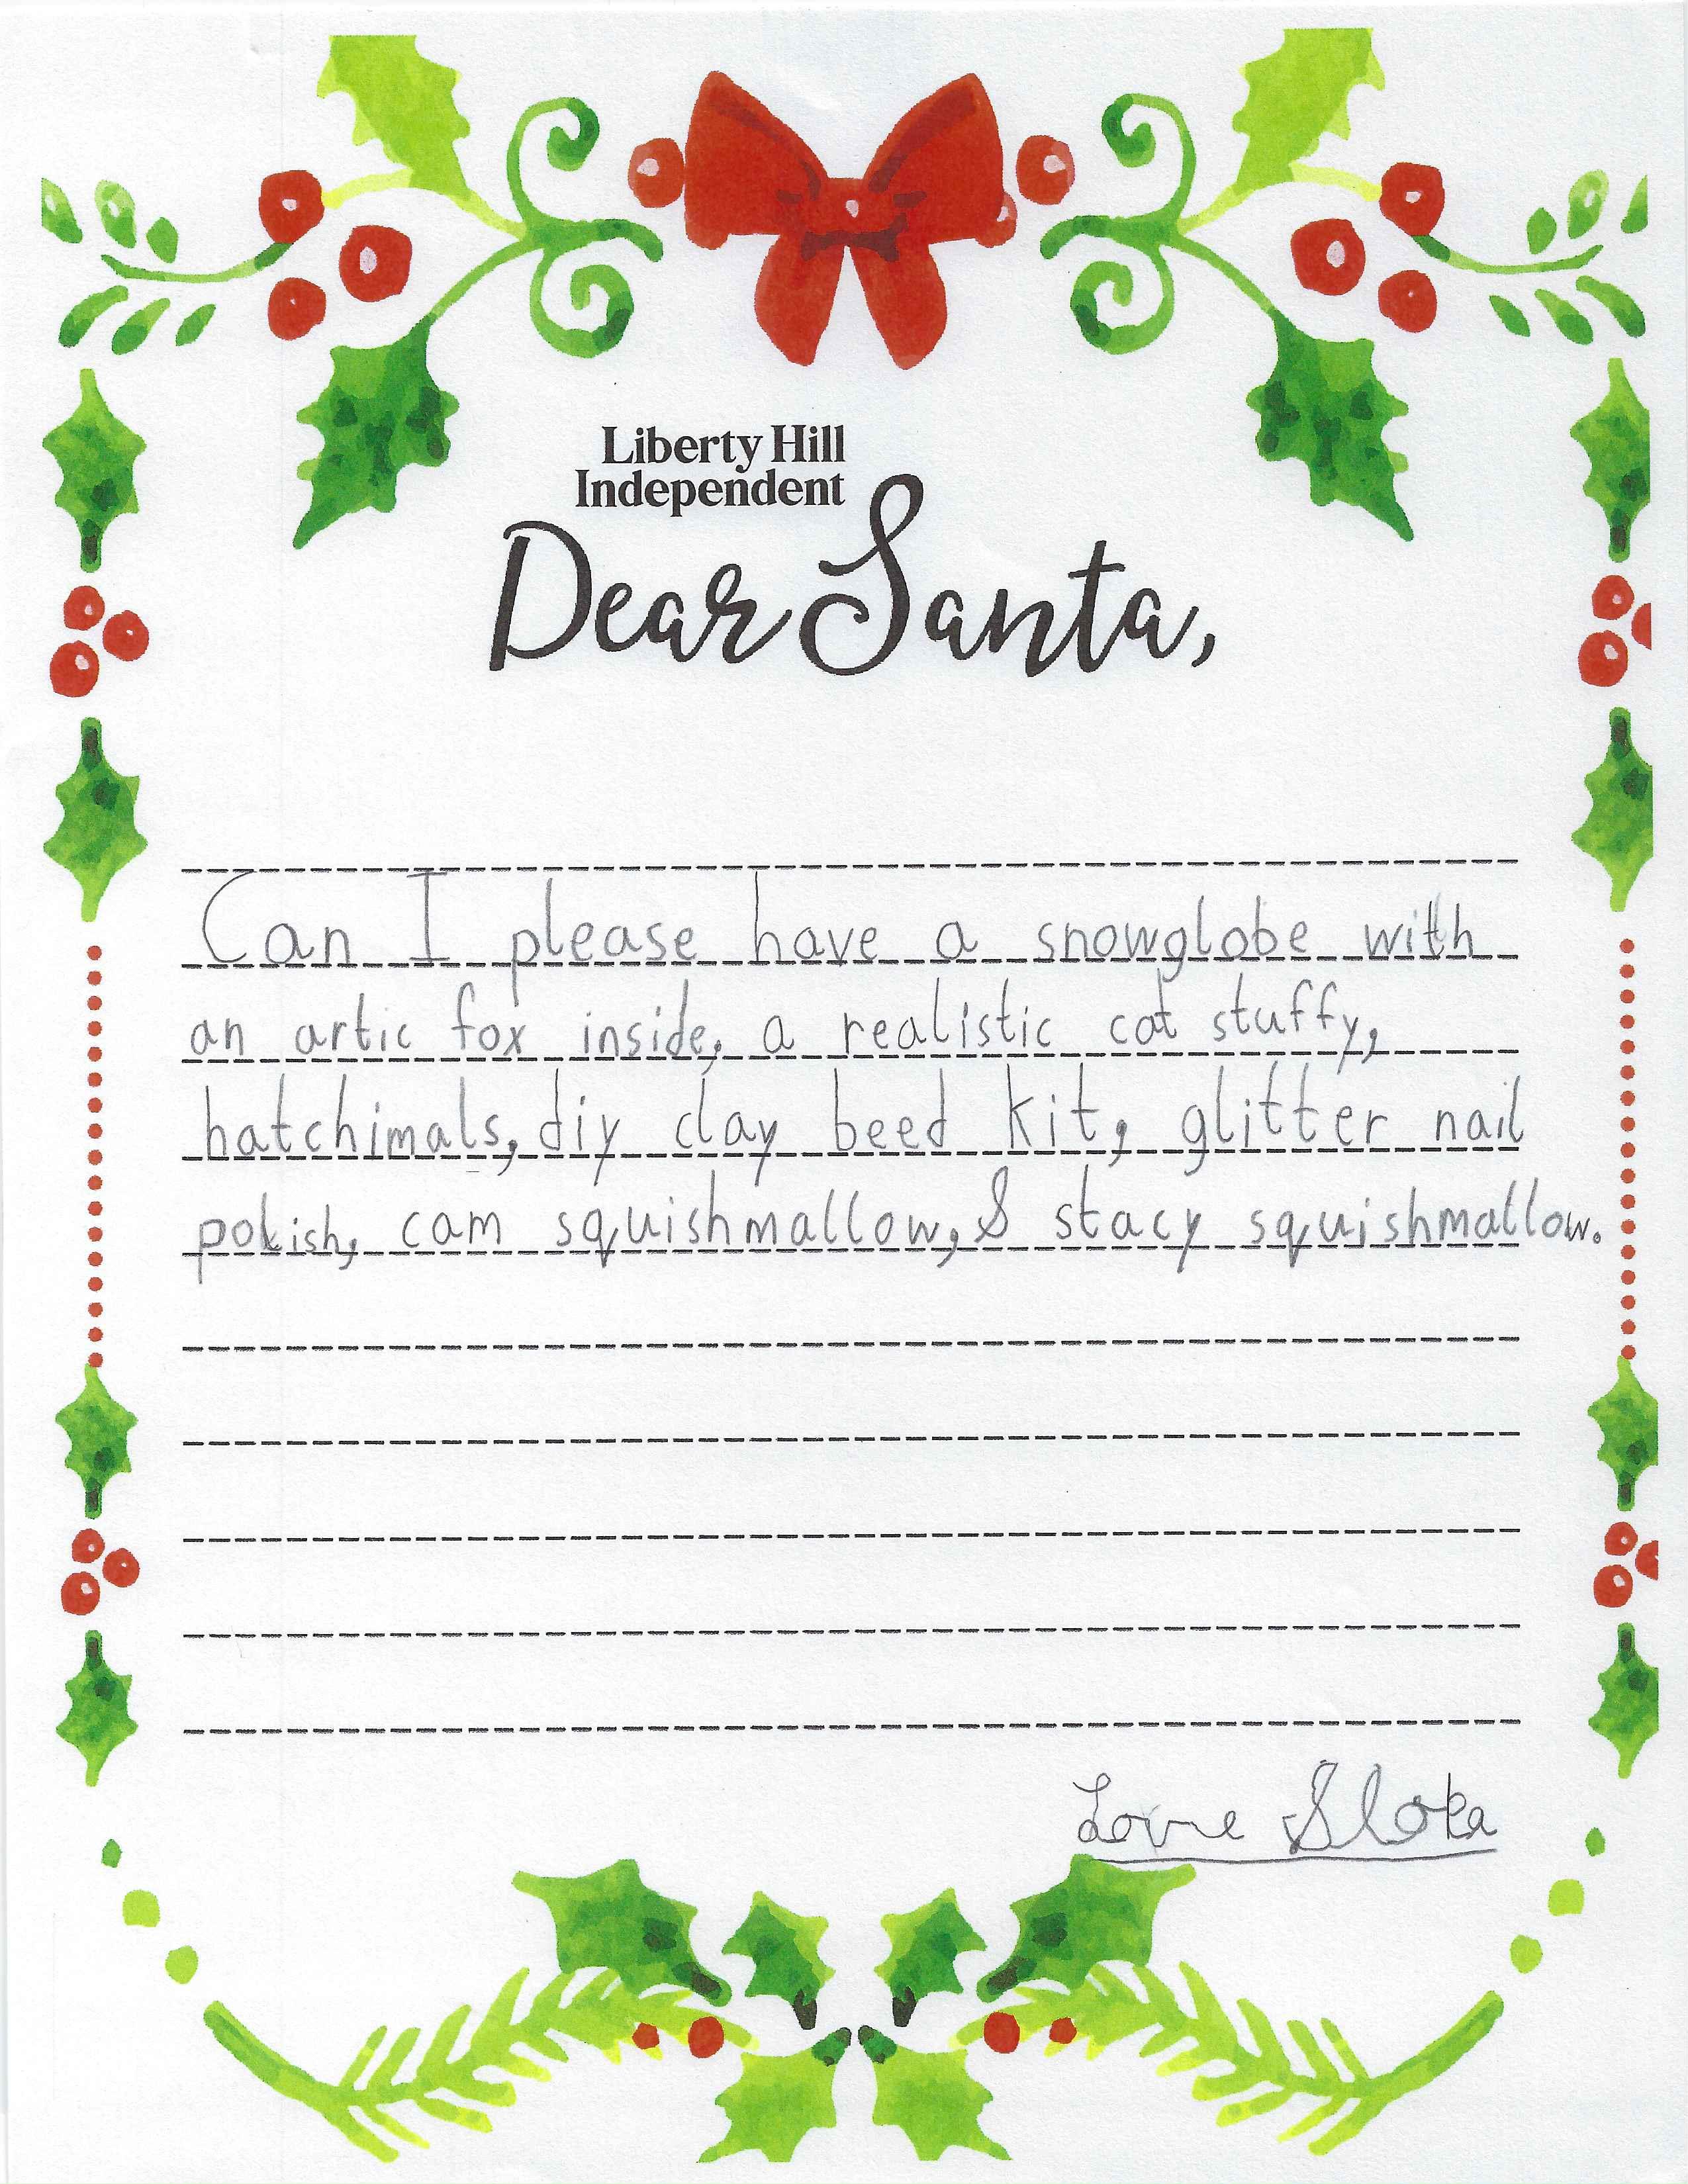 Liberty Hill
Independent
Dear Santa,
Can I please have a snowglobe with
an artic fox inside, a realistic cat stuffy,
hatchimals, diy clay beed kit, glitter nail
polish, cam squishmallow, & stacy squishmallow.
Love Sloka